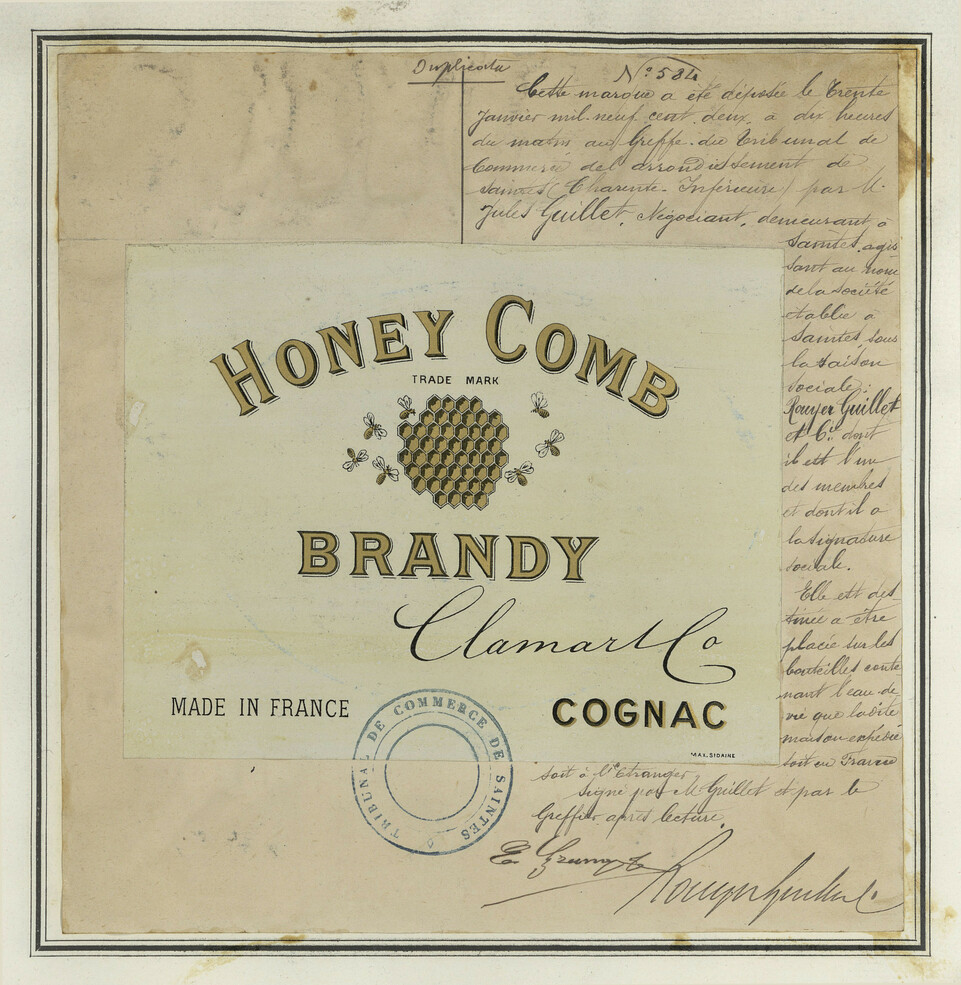 Duplicata
N° 584
Cette marque a été déposée le trente
Janvier mil neuf cent deux, à dix heures
du matin au Greffe du Tribunal de
Commerce de l'arrondissement de
Saintes (Charente-Inférieure) par M.
Jules Guillet, Négociant, demeurant à
Saintes, agis
sant au nom
de la société
établie à
Saintes sous
la raison
sociale:
Rouyer Guillet
et Cie dont
il est l'un
des membres
et dont il a
la signature
sociale.
Elle est des
tinée à être
placée sur les
bouteilles conte
nant l'eau-de-
vie que la dite
maison expédie
soit en France
soit à l'Etranger,
signé par M. Guillet et par le
Greffier après lecture.
HONEY COMB
TRADE MARK
BRANDY
Clamart Co
MADE IN FRANCE
COGNAC
MAX. SIDAINE
TRIBUNAL DE COMMERCE DE SAINTES
Rouyer Guillet Co